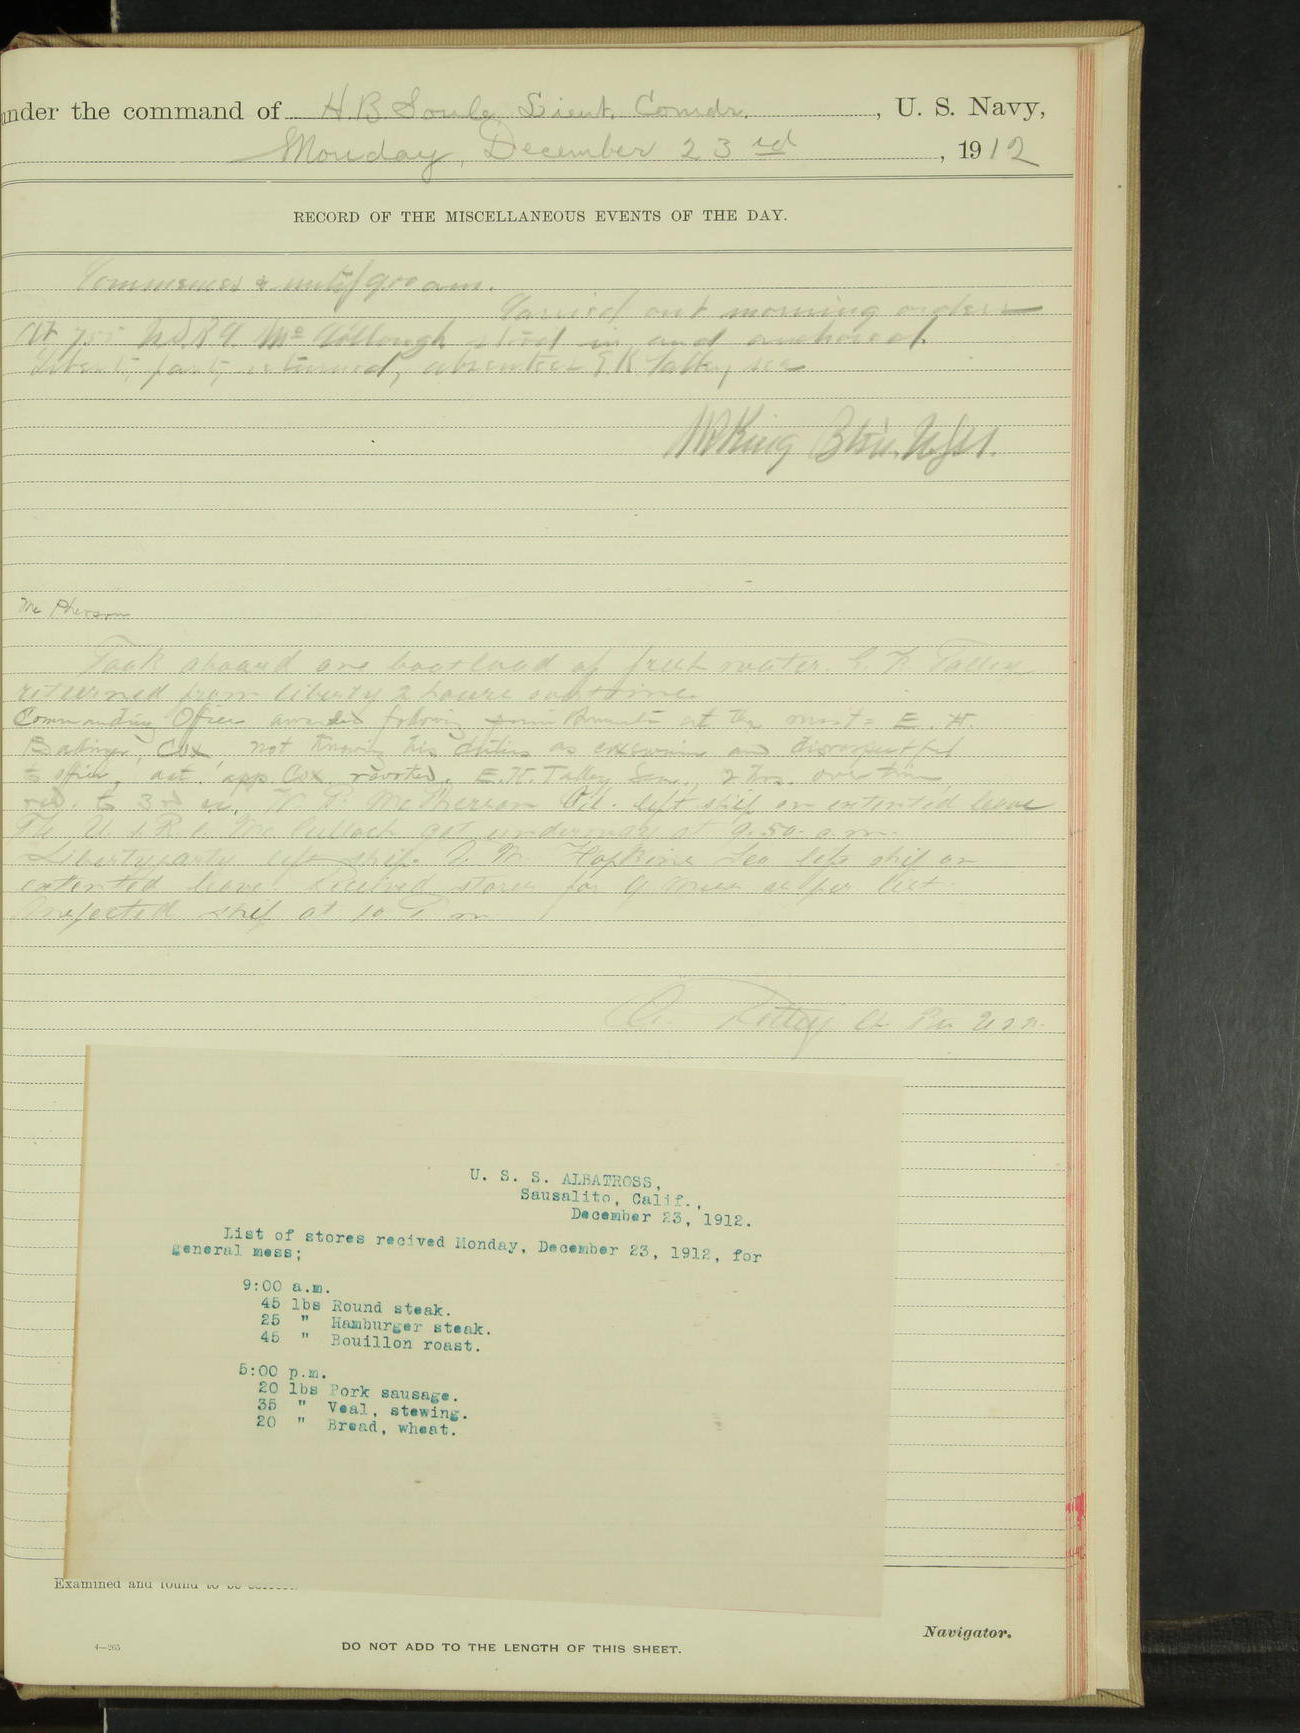 under the command of H. B. Soule, Lieut. Comdr., U. S. Navy,
Monday, December 23rd, 1912
RECORD OF THE MISCELLANEOUS EVENTS OF THE DAY.
Commences & until 9 00 am.
Carried out morning orders
At 7 U.S.R.C. Mc Cullough stood in and anchored.
Liberty party returned, absentee E.K. Talley, sea
King Btsn. U.S.N.
Mc Pherson
Took aboard one boatload of fresh water. E. K. Talley
returned from liberty 2 hours overtime.
Commanding Officer awarded following punishments at the mast = E. H.
Cox, not knowing his duties as coxswain and disrespectful
to officer, act. app. Cox revoked. E. K. Talley Sea., 2 hrs. overtime,
red. to 3rd cl. Mc Pherson Oil. left ship on extented leave
The U.S.R.C. Mc Cullock got underway at 9.50 a.m.
Liberty party left ship. Hopkins Sea left ship on
extented leave. Received stores for G Mess as per list
Inspected ship at 10 P m
U. S. S. ALBATROSS,
Sausalito, Calif.,
December 23, 1912.
List of stores recived Monday, December 23, 1912, for
general mess;
9:00 a.m.
45 lbs Round steak.
25 " Hamburger steak.
45 " Bouillon roast.
5:00 p.m.
20 lbs Pork sausage.
35 " Veal, stewing.
20 " Bread, wheat.
Examined and found to be
Navigator.
4—265
DO NOT ADD TO THE LENGTH OF THIS SHEET.